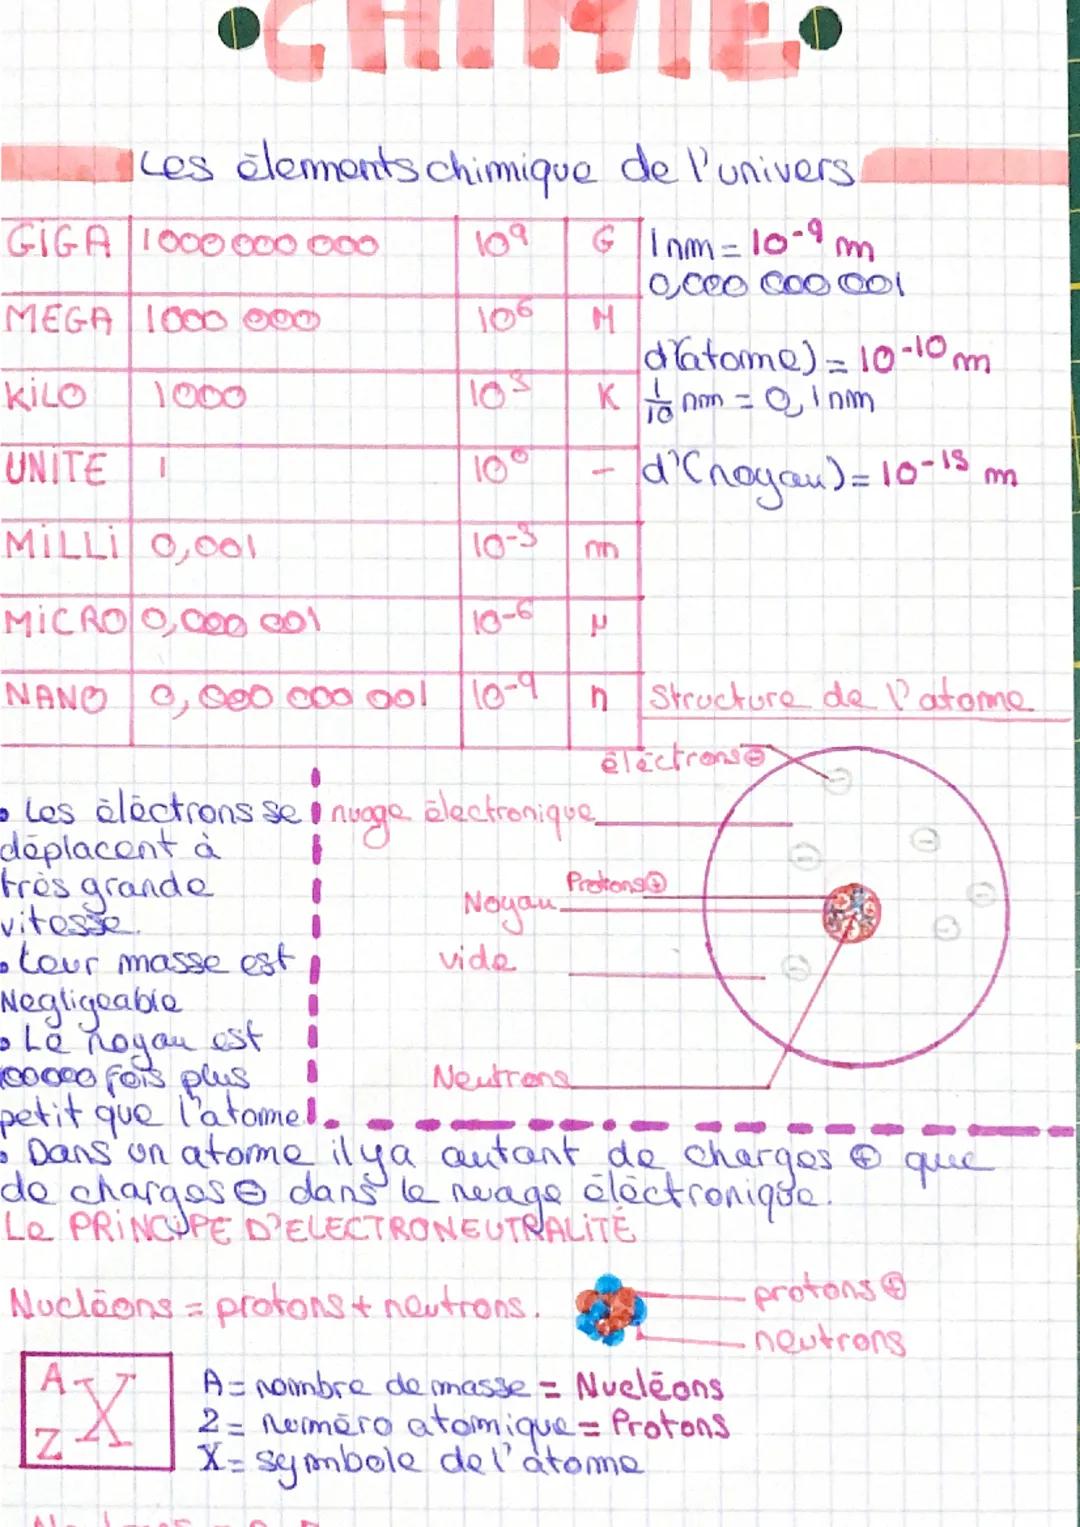 CHIMIE
Les élements chimique de l'univers
GiGA 1000 000 000 10⁹ G
MEGA 1000 000 10⁶ M
KiLO 1000 10³ K
UNITE 1 10⁰ -
MiLLi 0,001 10-3 m
MiCRO 0,000 001 10-6 μ
NANO 0,000 000 001 10-9 n
1nm = 10-9 m
0,000 000 001
d(atome) = 10-10 m
1/10 nm = 0,1nm
d'(noyau) = 10-15 m
Structure de l'atome
éléctrons⊖
nuage électronique
Protons⊕
Noyau
vide
Neutrons
• Les éléctrons se
déplacent à
très grande
vitesse.
• Leur masse est
Negligeable
• Le noyau est
100000 fois plus
petit que l'atome
• Dans un atome il y a autant de charges ⊕ que
de charges ⊖ dans le nuage éléctronique.
Le PRiNCiPE D'ELECTRONEUTRALITÉ
Nucléons = protons + neutrons.
protons ⊕
neutrons
A
X
Z
A = nombre de masse = Nucléons
Z = numéro atomique = Protons
X = symbole de l'atome